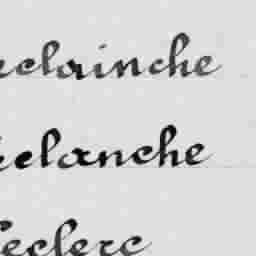 eclainche
elanche
Leclerc